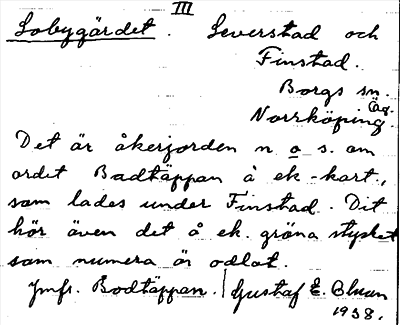 III
Sobygärdet. Leverstad och
Finstad.
Borgs sn.
Ög.
Norrköping.
Det är åkerjorden n o s. om
ordet Badtäppan å ek-kart.,
som lades under Finstad. Dit
hör även det å ek. gröna stycket
som numera är odlat.
Jmfr. Bodtäppan. | Gustaf E. Bluan
1938.